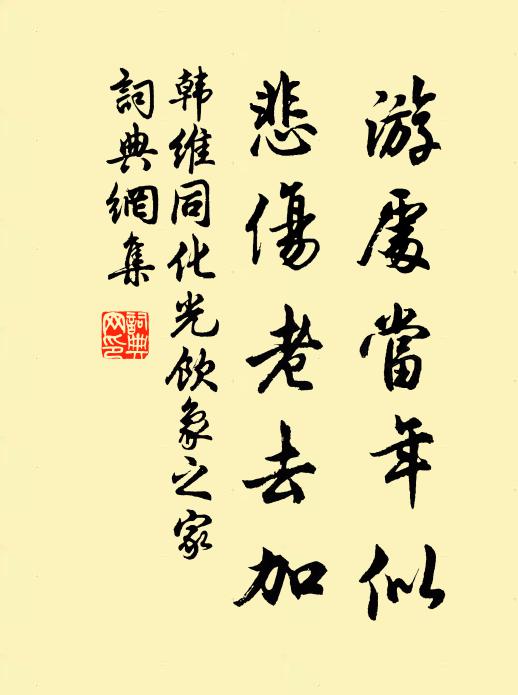 游處當年似
悲傷老去加
韩維同化光飲象之家
詞典網集
詞典
网印